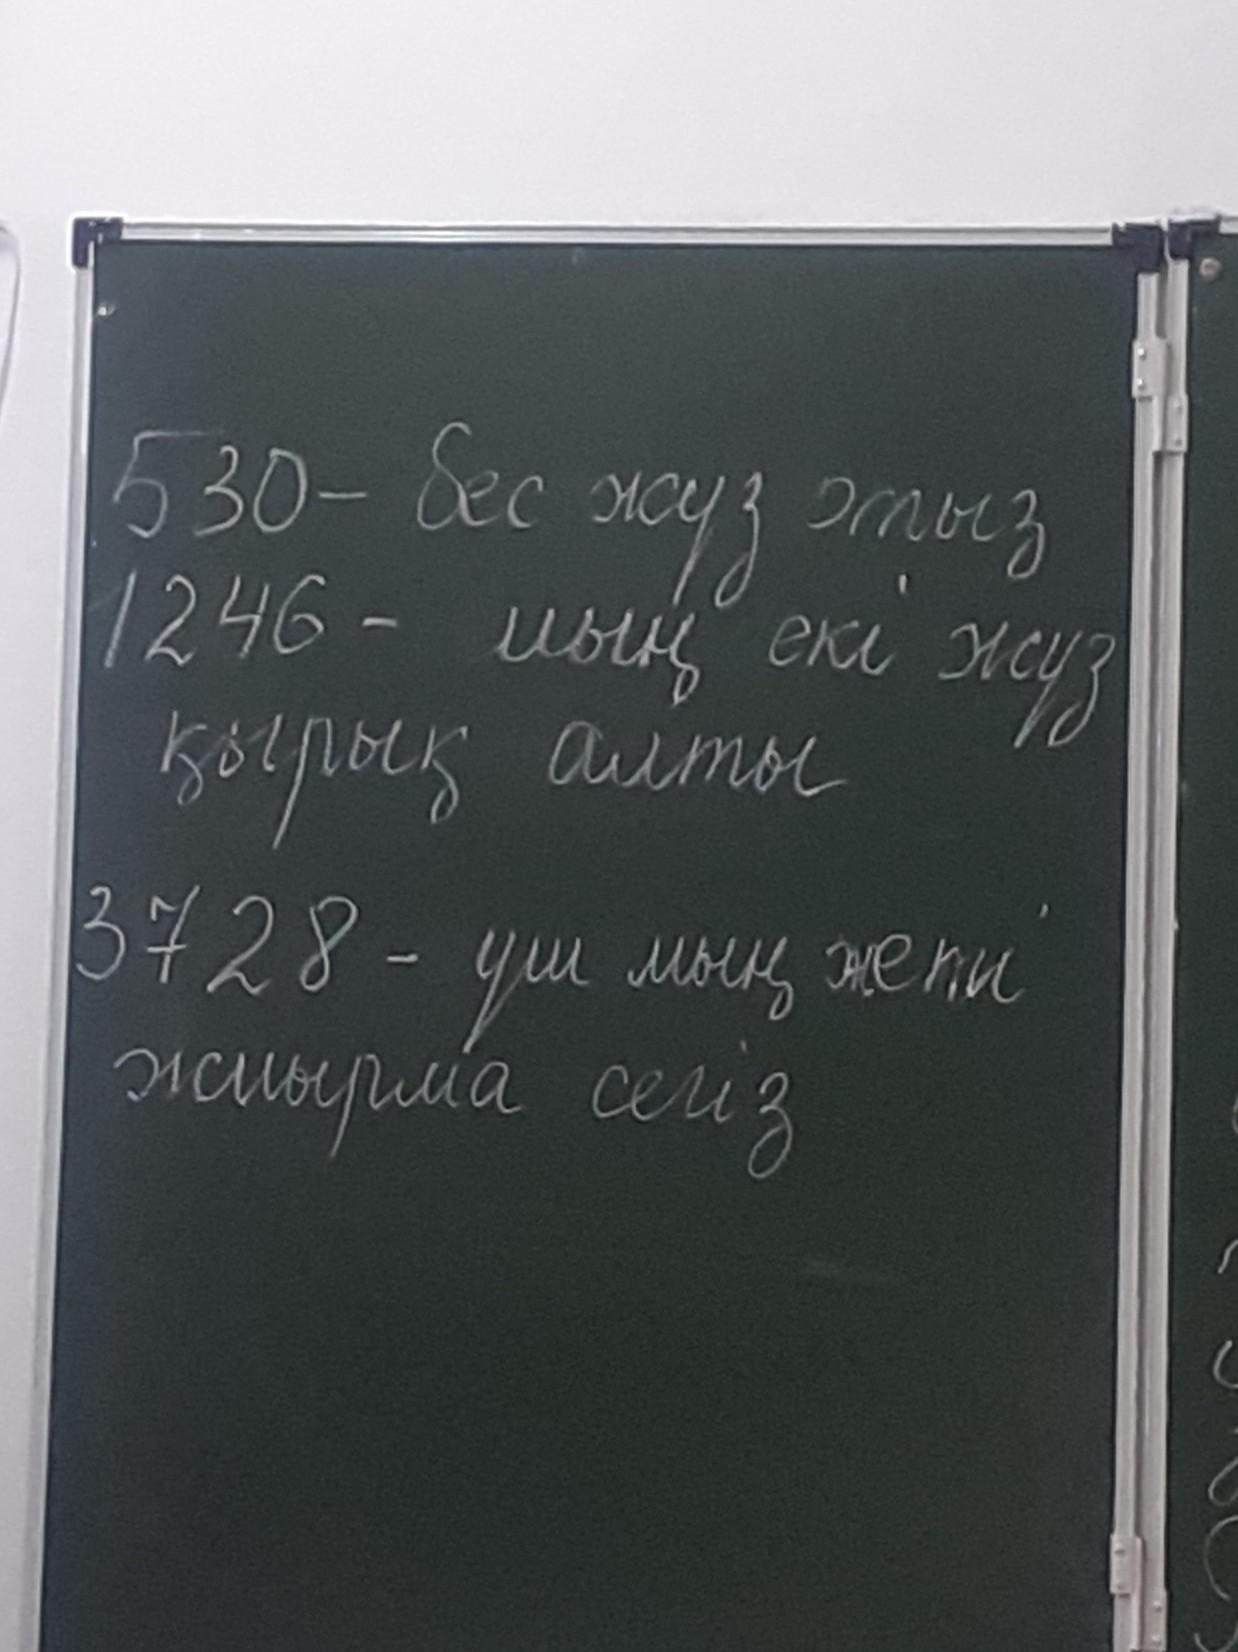 530 - бес жүз отыз
1246 - мың екі жүз
қырық алты
3728 - үш мың жеті
жиырма сегіз